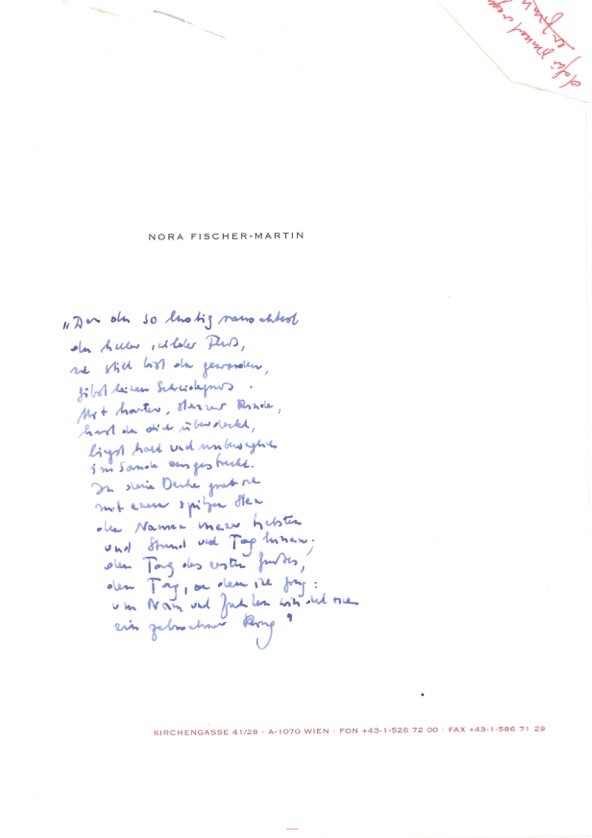 NORA FISCHER-MARTIN
"Der du so lustig rauschtest
du heller, wilder Fluß,
wie still bist du geworden,
gibst keinen Scheidegruß.
Mit harter, starrer Rinde,
hast du dich überdeckt,
liegst kalt und unbeweglich
im Sande ausgestreckt.
In deine Decke grab ich
mit einem spitzen Stein
den Namen meiner Liebsten
und Stund und Tag hinein;
den Tag des ersten Grußes,
den Tag, an dem ich ging:
um Nam und Zahlen windet sich
ein zebrochner Ring"
KIRCHENGASSE 41/28 · A-1070 WIEN · FON +43-1-526 72 00 · FAX +43-1-586 71 29